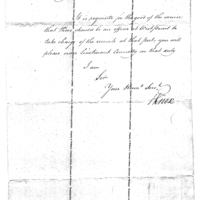 It is requisite for the good of the service
that there should be an officer at West Point to
take charge of the recruits at that post, you will
please order Lieutenant Connelly on that duty
I am
Sir
Your Hum. Serv.t
HKnox